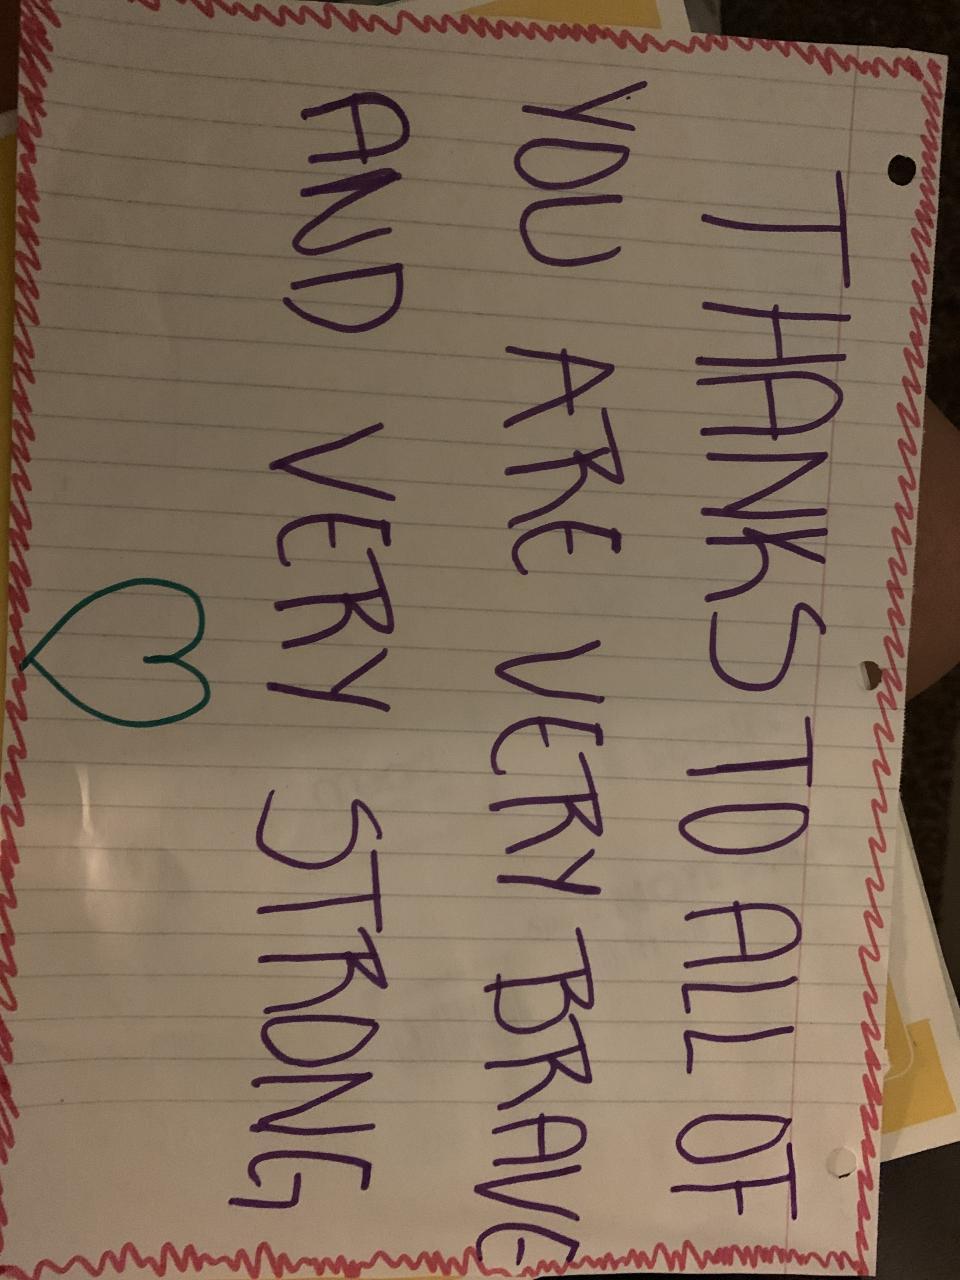 THANKS TO ALL OF
YOU ARE VERY BRAVE
AND VERY STRONG